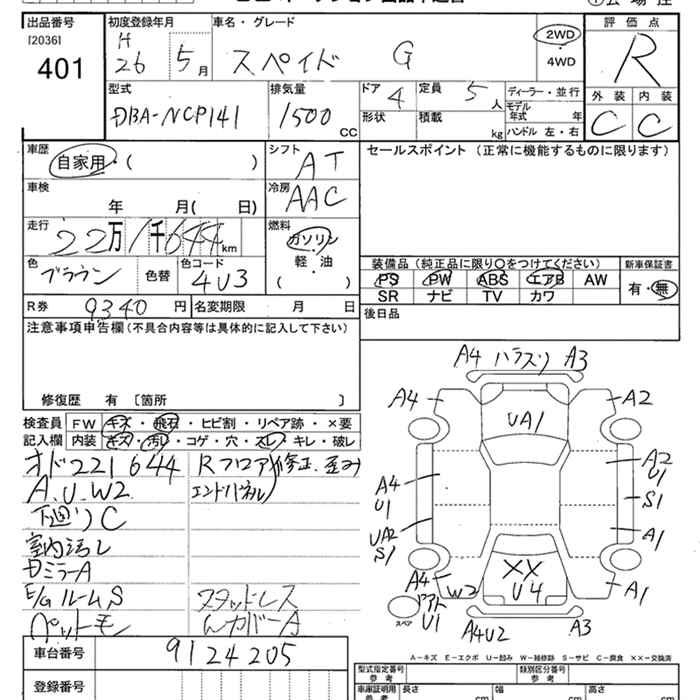 出品番号
[2036]
401
初度登録年月
H
26 5月
車名・グレード
スペイド G
2WD
・
4WD
評価点
R
外装 内装
C C
型式
DBA-NCP141
排気量
1500
CC
ドア 4
形状
定員 5人
積載 kg
ディーラー・並行
モデル
年式 年
ハンドル 左・右
車歴
自家用・( )
シフト
AT
セールスポイント (正常に機能するものに限ります)
車検
年 月( 日)
冷房
AAC
走行
22万1千644km
燃料
ガソリン
軽・油
( )
色
ブラウン
色替
色コード
4U3
装備品(純正品に限り○をつけてください)
新車保証書
PS PW ABS エアB AW
SR ナビ TV カワ
有・無
R券 9340円
名変期限 月 日
後日品
注意事項申告欄(不具合内容等は具体的に記入して下さい)
修復歴 有 〔箇所 〕
検査員
記入欄
FW キズ・飛石・ヒビ割・リペア跡・×要
内装 キズ・汚レ・コゲ・穴・スレ・キレ・破レ
オド221644
A.U.W2
下廻りC
室内汚レ
Dミラー A
E/GルームS
ペットモン
Rフロア修正.歪み
エンドパネル
スタッドレス
車台番号 9124205
登録番号
A4 ハラスリ A3
A4
A2
UA1
A4
U1
A2
U1
S1
UA2
S1
A1
A4
W2
XX
U4
A1
スペア
U1
A4U2
A3
A-キズ E-エクボ U-凹み W-補修跡 S-サビ C-腐食 ××-交換済
型式指定番号
類別区分番号
参考
車庫証明用
参考
長さ cm
幅 cm
高さ cm